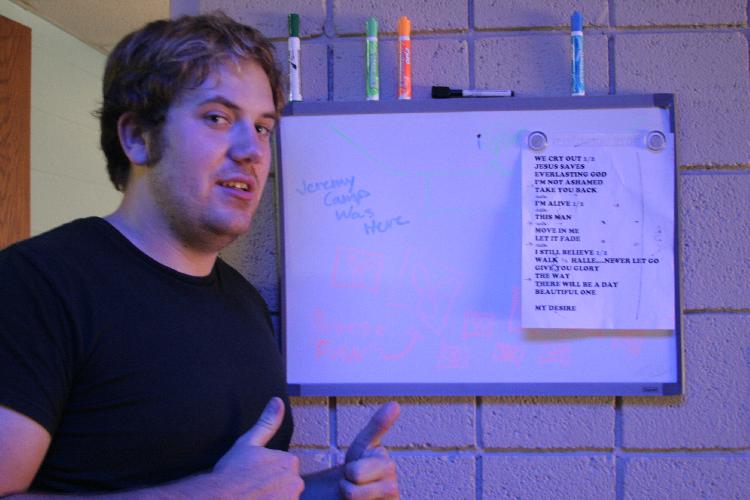 Jeremy
Camp
Was
Here
WE CRY OUT 1/2
JESUS SAVES
EVERLASTING GOD
I'M NOT ASHAMED
TAKE YOU BACK
I'M ALIVE 1/2
THIS MAN
MOVE IN ME
LET IT FADE
I STILL BELIEVE 1/2
WALK ½ HALLE....NEVER LET GO
GIVE YOU GLORY
THE WAY
THERE WILL BE A DAY
BEAUTIFUL ONE
MY DESIRE